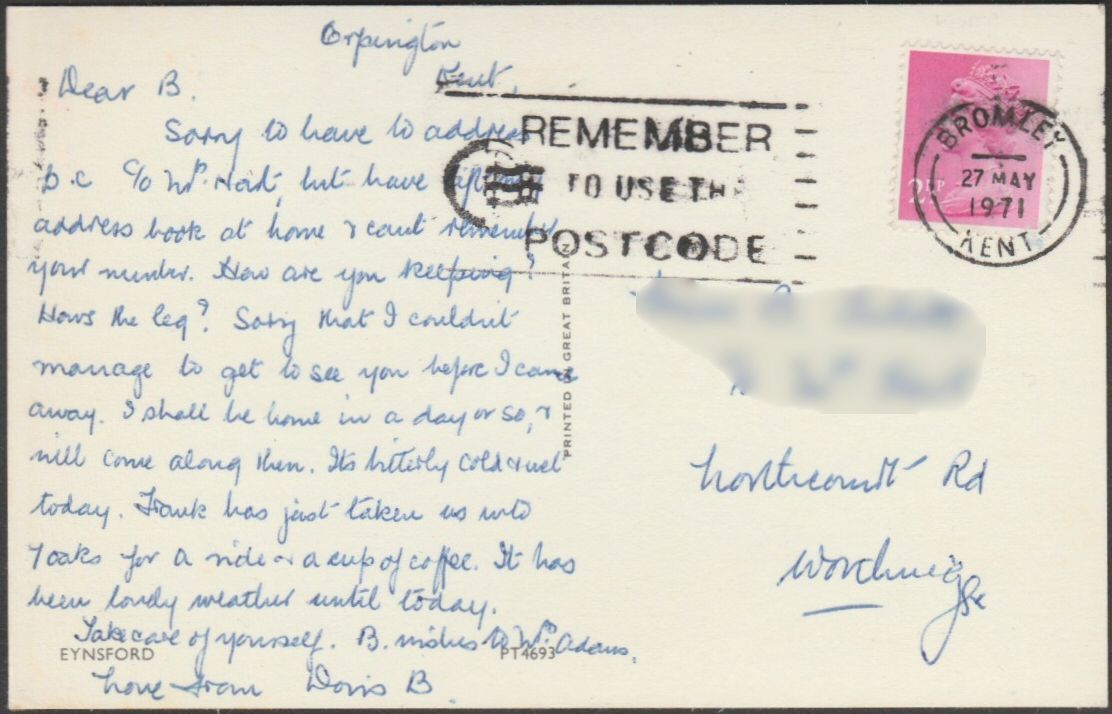 Orpington
Kent,
Dear B.
Sorry to have to address
p.c c/o Mrs. Hart, but have left my
address book at home & cant remember
your number. How are you keeping?
Hows the leg? Sorry that I couldn't
manage to get to see you before I came
away. I shall be home in a day or so, &
will come along then. Its bitterly cold & wet
today. Frank has just taken us into
7oaks for a ride & a cup of coffee. It has
been lovely weather until today.
Take care of yourself. B. wishes to Mrs Adams.
Love from Doris B
EYNSFORD
PT4693
PRINTED IN GREAT BRITAIN
REMEMBER
TO USE THE
POSTCODE
BROMLEY
27 MAY
1971
KENT
2½P
Northcourt Rd
Worthing
Sx